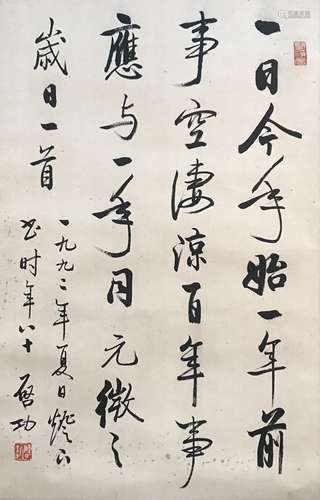 一日今年始一年前
事空凄涼百年事
應与一年同元微之
歲日一首
一九九二年夏日燈下
书时年八十 启功